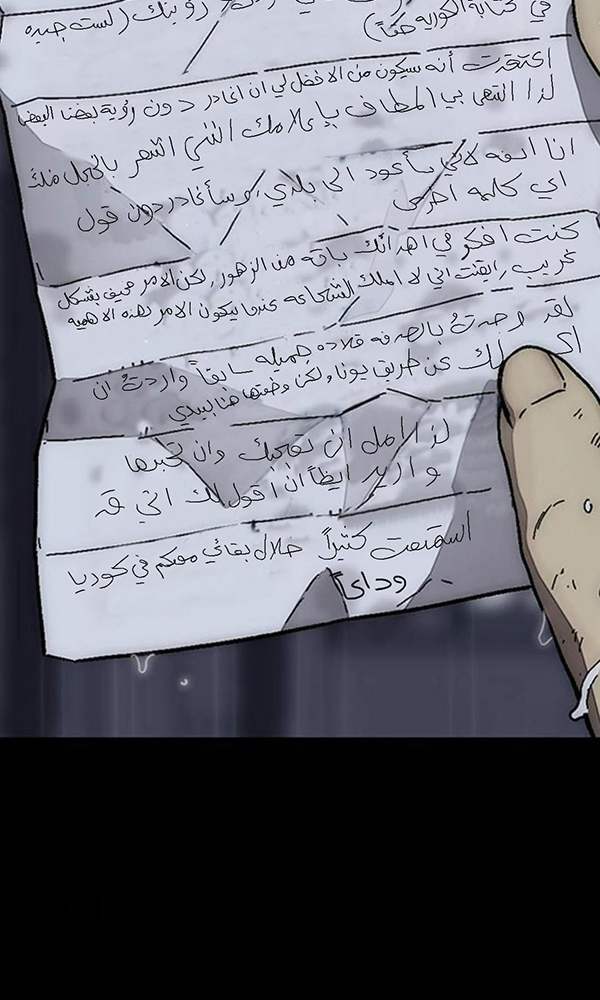 رؤيتك (لست جيده
في كتابة الكوريه حقاً)
اعتقدت أنه سيكون من الافضل لي ان اغادر دون رؤية بعضنا البعض
لذا انتهى بي المطاف بإعلامك انني اشعر بالخجل منك
انا اسفه لاني سأعود الى بلدي، وسأغادر دون قول
اي كلمه اخرى
كنت افكر في اهدائك باقه من الزهور، لكن الامر مخيف بشكل
غريب، ايقنت اني لا املك الشجاعه عندما يكون الامر بهذه الاهميه
لقد وجدت بالصدفه قلاده جميله سابقاً واردت ان
لك عن طريق يونا، ولكن وضعتها هنا بيدي
لذا آمل ان تعجبك وان تخبرها
واريد ايضاً ان اقول لك اني قد
استمتعت كثيراً خلال بقائي معكم في كوريا
وداعاً..